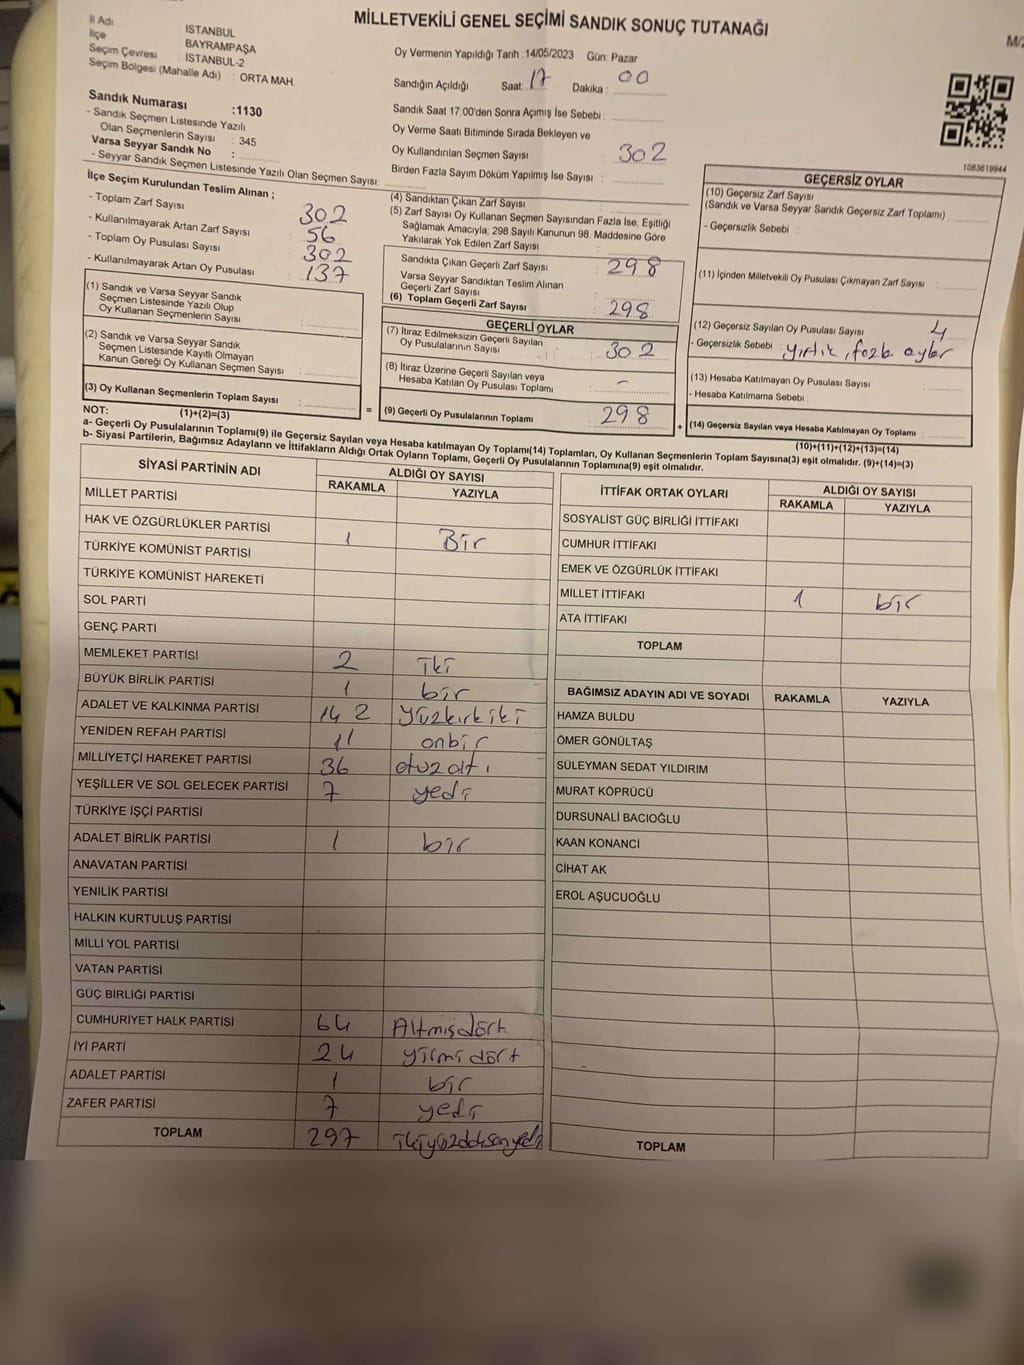 MİLLETVEKİLİ GENEL SEÇİMİ SANDIK SONUÇ TUTANAĞI
M/2
İl Adı İSTANBUL
İlçe BAYRAMPAŞA
Seçim Çevresi İSTANBUL-2
Seçim Bölgesi (Mahalle Adı) : ORTA MAH.
Sandık Numarası :1130
- Sandık Seçmen Listesinde Yazılı
Olan Seçmenlerin Sayısı : 345
Varsa Seyyar Sandık No :
- Seyyar Sandık Seçmen Listesinde Yazılı Olan Seçmen Sayısı:
Oy Vermenin Yapıldığı Tarih :14/05/2023 Gün: Pazar
Sandığın Açıldığı Saat: 17 Dakika : 00
Sandık Saat 17.00'den Sonra Açımış İse Sebebi :
Oy Verme Saati Bitiminde Sırada Bekleyen ve
Oy Kullandırılan Seçmen Sayısı : 302
Birden Fazla Sayım Döküm Yapılmış İse Sayısı :
1083619944
İlçe Seçim Kurulundan Teslim Alınan ;
- Toplam Zarf Sayısı : 302
- Kullanılmayarak Artan Zarf Sayısı : 56
- Toplam Oy Pusulası Sayısı : 302
- Kullanılmayarak Artan Oy Pusulası : 137
(1) Sandık ve Varsa Seyyar Sandık
Seçmen Listesinde Yazılı Olup
Oy Kullanan Seçmenlerin Sayısı :
(2) Sandık ve Varsa Seyyar Sandık
Seçmen Listesinde Kayıtlı Olmayan
Kanun Gereği Oy Kullanan Seçmen Sayısı :
(3) Oy Kullanan Seçmenlerin Toplam Sayısı :
(1)+(2)=(3)
(4) Sandıktan Çıkan Zarf Sayısı :
(5) Zarf Sayısı Oy Kullanan Seçmen Sayısından Fazla İse, Eşitliği
Sağlamak Amacıyla; 298 Sayılı Kanunun 98. Maddesine Göre
Yakılarak Yok Edilen Zarf Sayısı :
Sandıkta Çıkan Geçerli Zarf Sayısı : 298
Varsa Seyyar Sandıktan Teslim Alınan
Geçerli Zarf Sayısı :
(6) Toplam Geçerli Zarf Sayısı : 298
GEÇERLİ OYLAR
(7) İtiraz Edilmeksizin Geçerli Sayılan
Oy Pusulalarının Sayısı : 302
(8) İtiraz Üzerine Geçerli Sayılan veya
Hesaba Katılan Oy Pusulası Toplamı : -
= (9) Geçerli Oy Pusulalarının Toplamı : 298 +
GEÇERSİZ OYLAR
(10) Geçersiz Zarf Sayısı
(Sandık ve Varsa Seyyar Sandık Geçersiz Zarf Toplamı)
- Geçersizlik Sebebi :
(11) İçinden Milletvekili Oy Pusulası Çıkmayan Zarf Sayısı :
(12) Geçersiz Sayılan Oy Pusulası Sayısı : 4
- Geçersizlik Sebebi : yırtık, fazla oylar
(13) Hesaba Katılmayan Oy Pusulası Sayısı :
- Hesaba Katılmama Sebebi :
(14) Geçersiz Sayılan veya Hesaba Katılmayan Oy Toplamı :
(10)+(11)+(12)+(13)=(14)
NOT:
a- Geçerli Oy Pusulalarının Toplamı(9) ile Geçersiz Sayılan veya Hesaba katılmayan Oy Toplamı(14) Toplamları, Oy Kullanan Seçmenlerin Toplam Sayısına(3) eşit olmalıdır. (9)+(14)=(3)
b- Siyasi Partilerin, Bağımsız Adayların ve İttifakların Aldığı Ortak Oyların Toplamı, Geçerli Oy Pusulalarının Toplamına(9) eşit olmalıdır.
SİYASİ PARTİNİN ADI ALDIĞI OY SAYISI
RAKAMLA YAZIYLA
MİLLET PARTİSİ
HAK VE ÖZGÜRLÜKLER PARTİSİ 1 Bir
TÜRKİYE KOMÜNİST PARTİSİ
TÜRKİYE KOMÜNİST HAREKETİ
SOL PARTİ
GENÇ PARTİ
MEMLEKET PARTİSİ 2 iki
BÜYÜK BİRLİK PARTİSİ 1 bir
ADALET VE KALKINMA PARTİSİ 142 yüzkırkiki
YENİDEN REFAH PARTİSİ 11 onbir
MİLLİYETÇİ HAREKET PARTİSİ 36 otuzaltı
YEŞİLLER VE SOL GELECEK PARTİSİ 7 yedi
TÜRKİYE İŞÇİ PARTİSİ
ADALET BİRLİK PARTİSİ 1 bir
ANAVATAN PARTİSİ
YENİLİK PARTİSİ
HALKIN KURTULUŞ PARTİSİ
MİLLİ YOL PARTİSİ
VATAN PARTİSİ
GÜÇ BİRLİĞİ PARTİSİ
CUMHURİYET HALK PARTİSİ 64 Altmışdört
İYİ PARTİ 24 yirmi dört
ADALET PARTİSİ 1 bir
ZAFER PARTİSİ 7 yedi
TOPLAM 297
İTTİFAK ORTAK OYLARI ALDIĞI OY SAYISI
RAKAMLA YAZIYLA
SOSYALİST GÜÇ BİRLİĞİ İTTİFAKI
CUMHUR İTTİFAKI
EMEK VE ÖZGÜRLÜK İTTİFAKI
MİLLET İTTİFAKI 1 bir
ATA İTTİFAKI
TOPLAM
BAĞIMSIZ ADAYIN ADI VE SOYADI RAKAMLA YAZIYLA
HAMZA BULDU
ÖMER GÖNÜLTAŞ
SÜLEYMAN SEDAT YILDIRIM
MURAT KÖPRÜCÜ
DURSUNALİ BACIOĞLU
KAAN KONANCİ
CİHAT AK
EROL AŞUCUOĞLU
TOPLAM